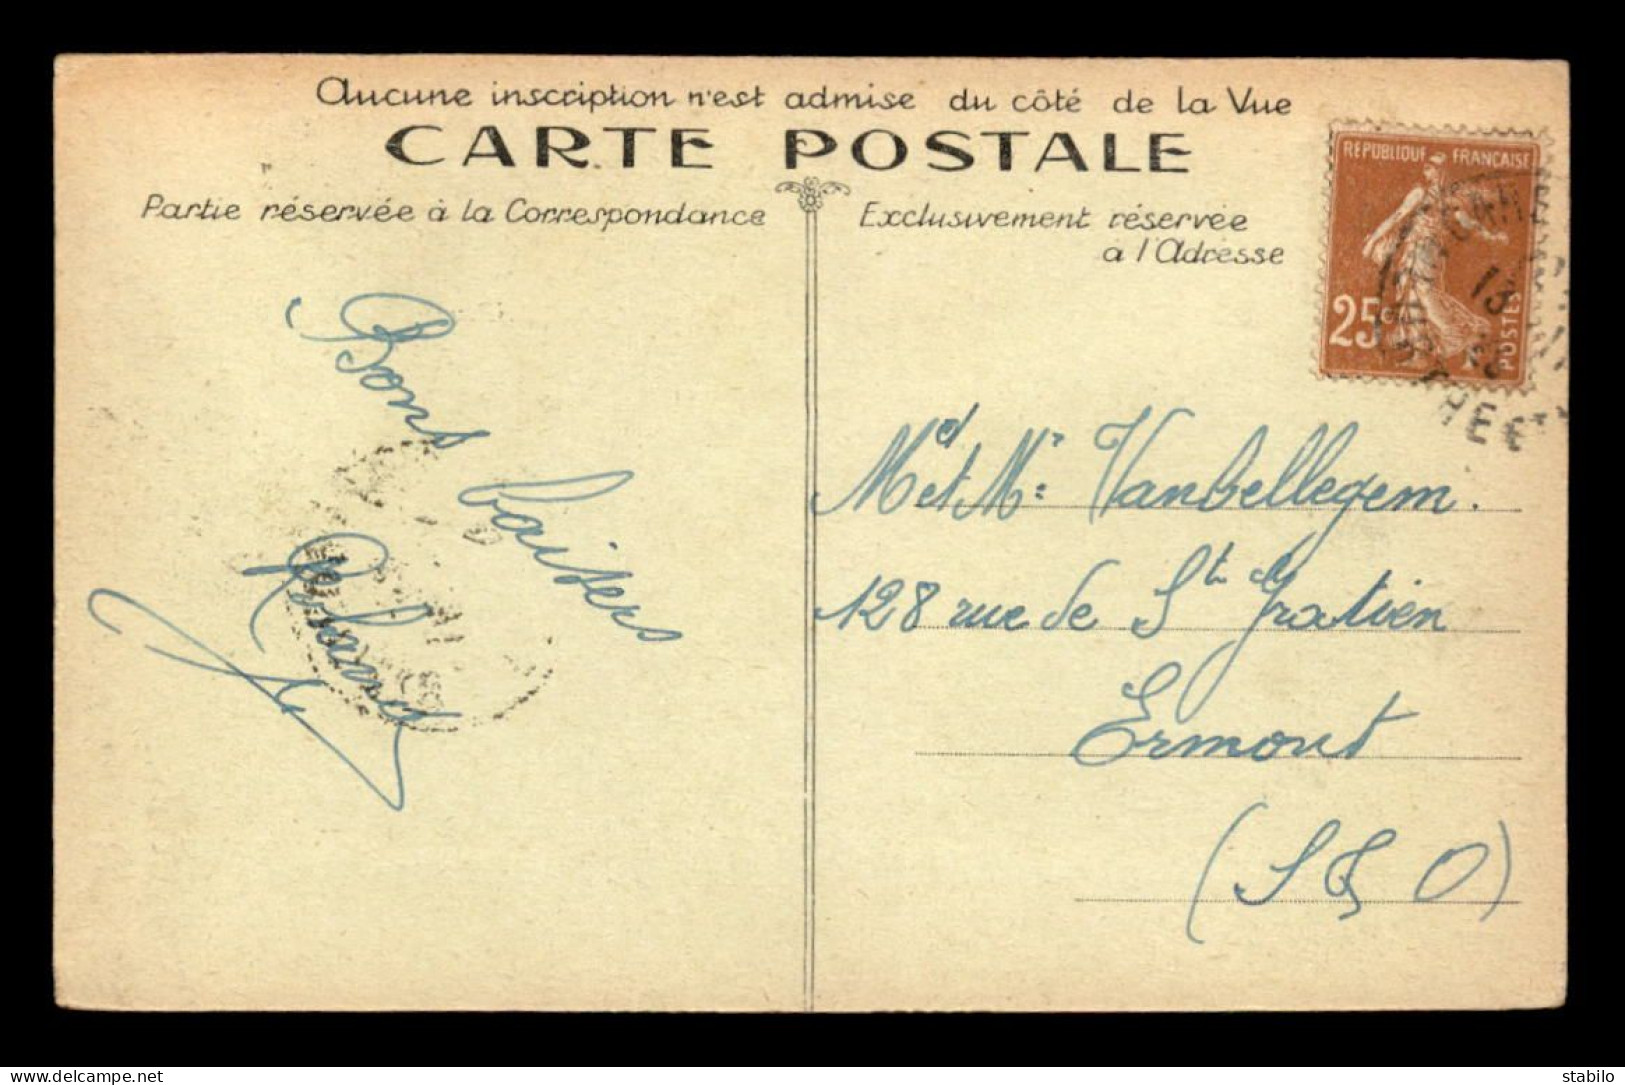 Aucune inscription n'est admise du côté de la Vue
CARTE POSTALE
Partie réservée à la Correspondance
Exclusivement réservée
a l'Adresse
RÉPUBLIQUE FRANÇAISE
25c
POSTES
13
Bons baisers
Roland
M et Me Vanbellegem.
128 rue de St Gratien
Ermont
(S & O)
delcampe.net
stabilo